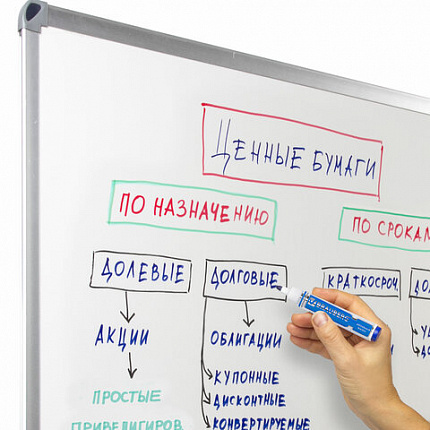 ЦЕННЫЕ БУМАГИ
ПО НАЗНАЧЕНИЮ
ПО СРОКАМ
ДОЛЕВЫЕ
ДОЛГОВЫЕ
КРАТКОСРОЧ.
АКЦИИ
ОБЛИГАЦИИ
ПРОСТЫЕ
КУПОННЫЕ
ДИСКОНТНЫЕ
ПРИВЕЛИГИРОВ
КОНВЕРТИРУЕМЫЕ